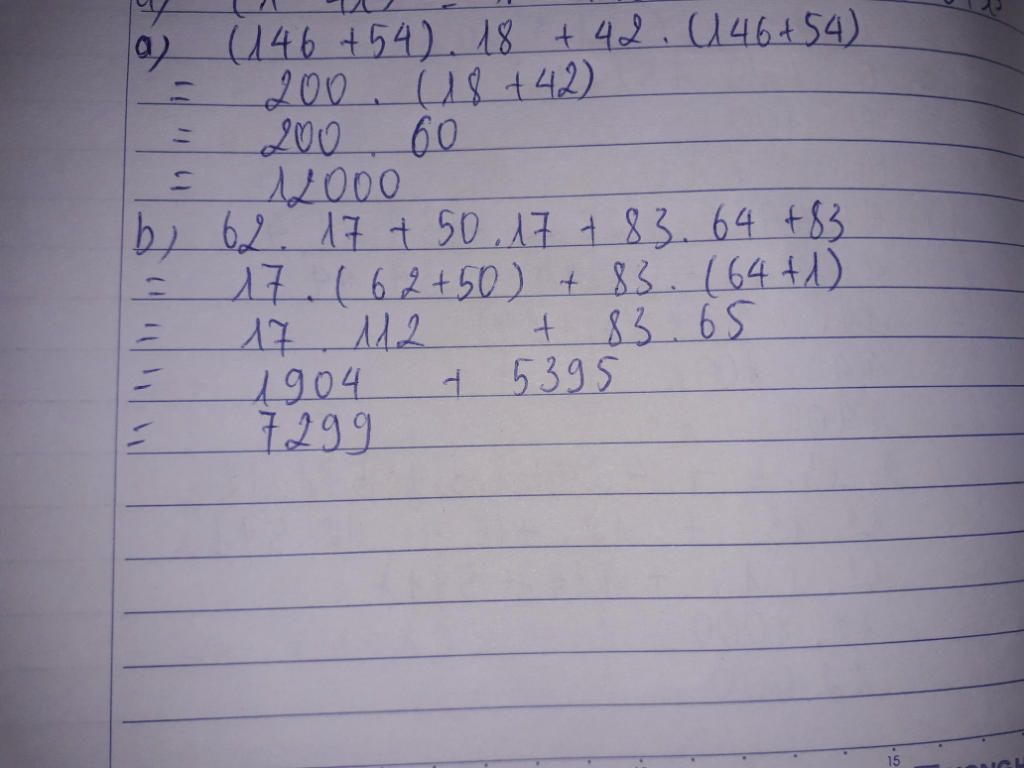 a) (146 + 54) . 18 + 42 . (146 + 54)
= 200 . (18 + 42)
= 200 . 60
= 12000
b) 62 . 17 + 50 . 17 + 83 . 64 + 83
= 17 . (62 + 50) + 83 . (64 + 1)
= 17 . 112 + 83 . 65
= 1904 + 5395
= 7299
15